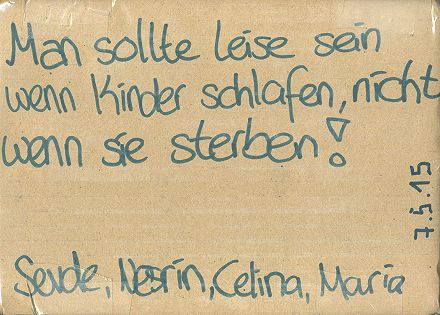 Man sollte leise sein
wenn Kinder schlafen, nicht
wenn sie sterben!
7.5.15
Sevde, Nesrin, Celina, Maria